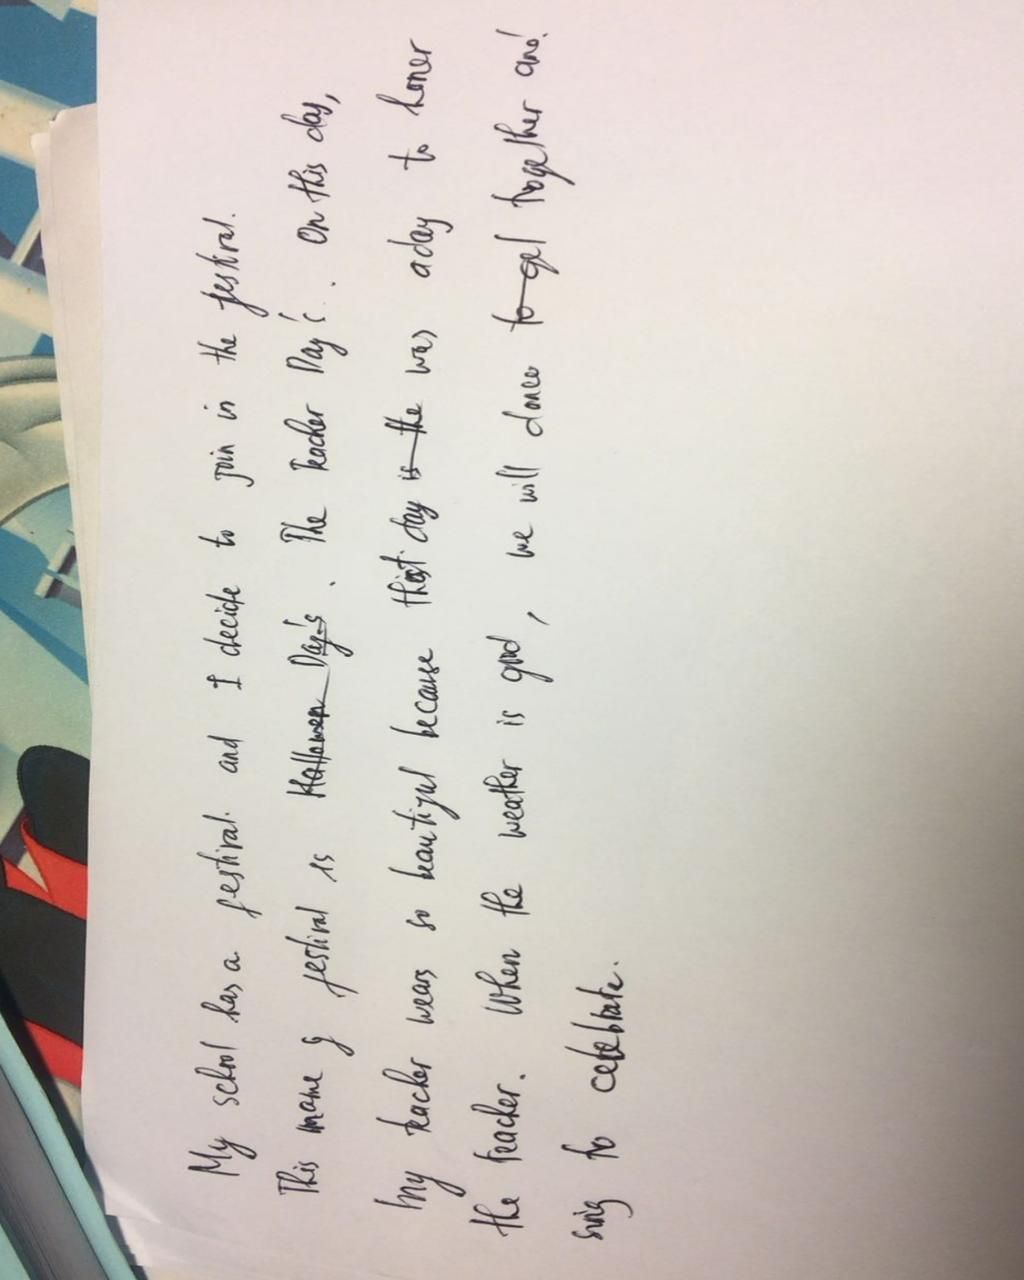 My school has a festival. and I decide to join in the festival.
This name of festival is Halloween Day's . The Teacher Day's . On this day,
my teacher wears so beautiful because thist day is the was a day to honer
the teacher. When the weather is good , we will dance to get together and
sing to celebrate.